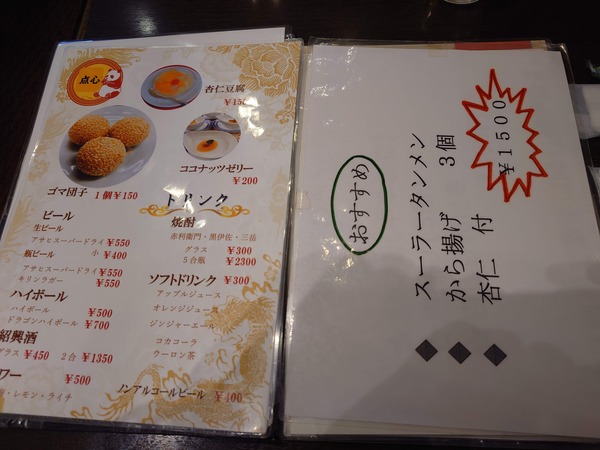 点心
杏仁豆腐
¥150
ココナッツゼリー
¥200
ゴマ団子 1個¥150
ドリンク
ビール
生ビール
アサヒスーパードライ ¥550
瓶ビール 小 ¥400
アサヒスーパードライ ¥550
キリンラガー ¥550
ハイボール
ハイボール ¥500
ドラゴンハイボール ¥700
紹興酒
グラス ¥450 2合 ¥1350
ワー ¥500
・レモン・ライチ
焼酎
赤利衛門・黒伊佐・三岳
グラス ¥300
5合瓶 ¥2300
ソフトドリンク ¥300
アップルジュース
オレンジジュース
ジンジャーエール
コカコーラ
ウーロン茶
ノンアルコールビール ¥400
おすすめ
◆ スーラータンメン
◆ から揚げ 3個
◆ 杏仁 付
¥1500